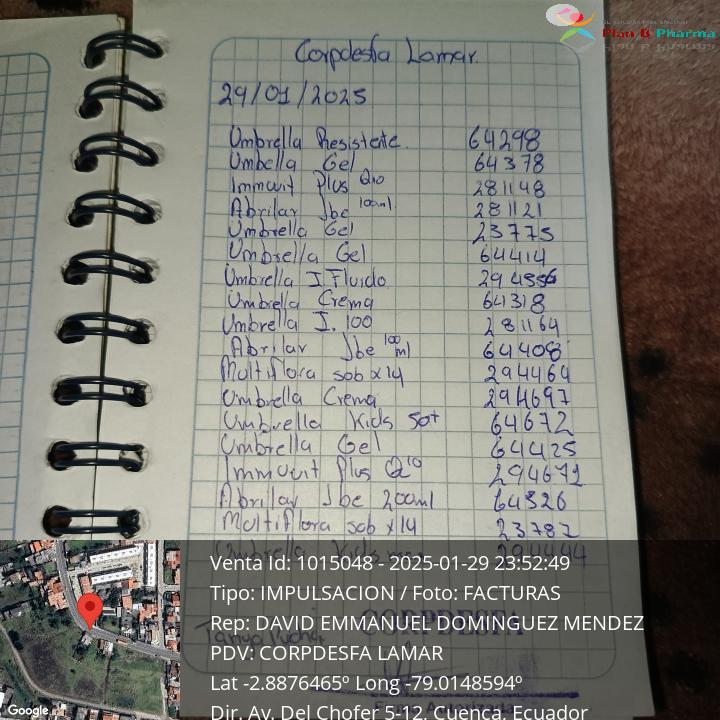 Plan B Pharma
Corpdesfa Lamar.
29/01/2025
Umbrella Resistente. 64298
Umbella Gel 64378
Immuvit Plus Q10 281148
Abrilar Jbe 100ml. 281121
Umbrella Gel 23775
Umbrella Gel 64414
Umbrella I Fluido 294556
Umbrella Crema 64318
Umbrella I. 100 281164
Abrilar Jbe 100 ml 64408
Multiflora sob x14 294464
Umbrella Crema 294697
Umbrella Kids 50+ 64672
Umbrella Gel 64425
Immuvit Plus Q10 294671
Abrilar Jbe 200ml 64326
Multiflora sob x14 23782
Umbrella Kids 294444
CORPDESFA
Venta Id: 1015048 - 2025-01-29 23:52:49
Tipo: IMPULSACION / Foto: FACTURAS
Rep: DAVID EMMANUEL DOMINGUEZ MENDEZ
PDV: CORPDESFA LAMAR
Lat -2.8876465º Long -79.0148594º
Dir. Av. Del Chofer 5-12, Cuenca, Ecuador
Google